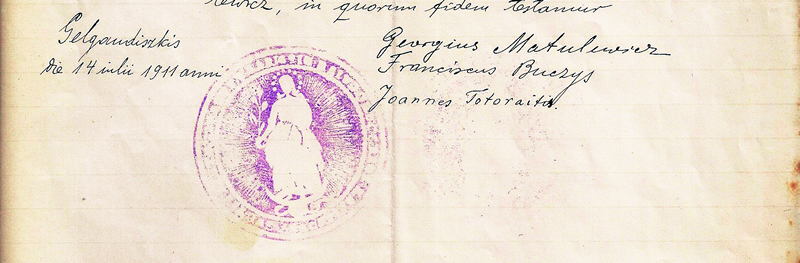 lewicz, in quorum fidem testamur
Gelgaudiszkis
die 14 iulii 1911 anni
Georgius Matulewicz
Franciscus Buczys
Joannes Totoraitis.